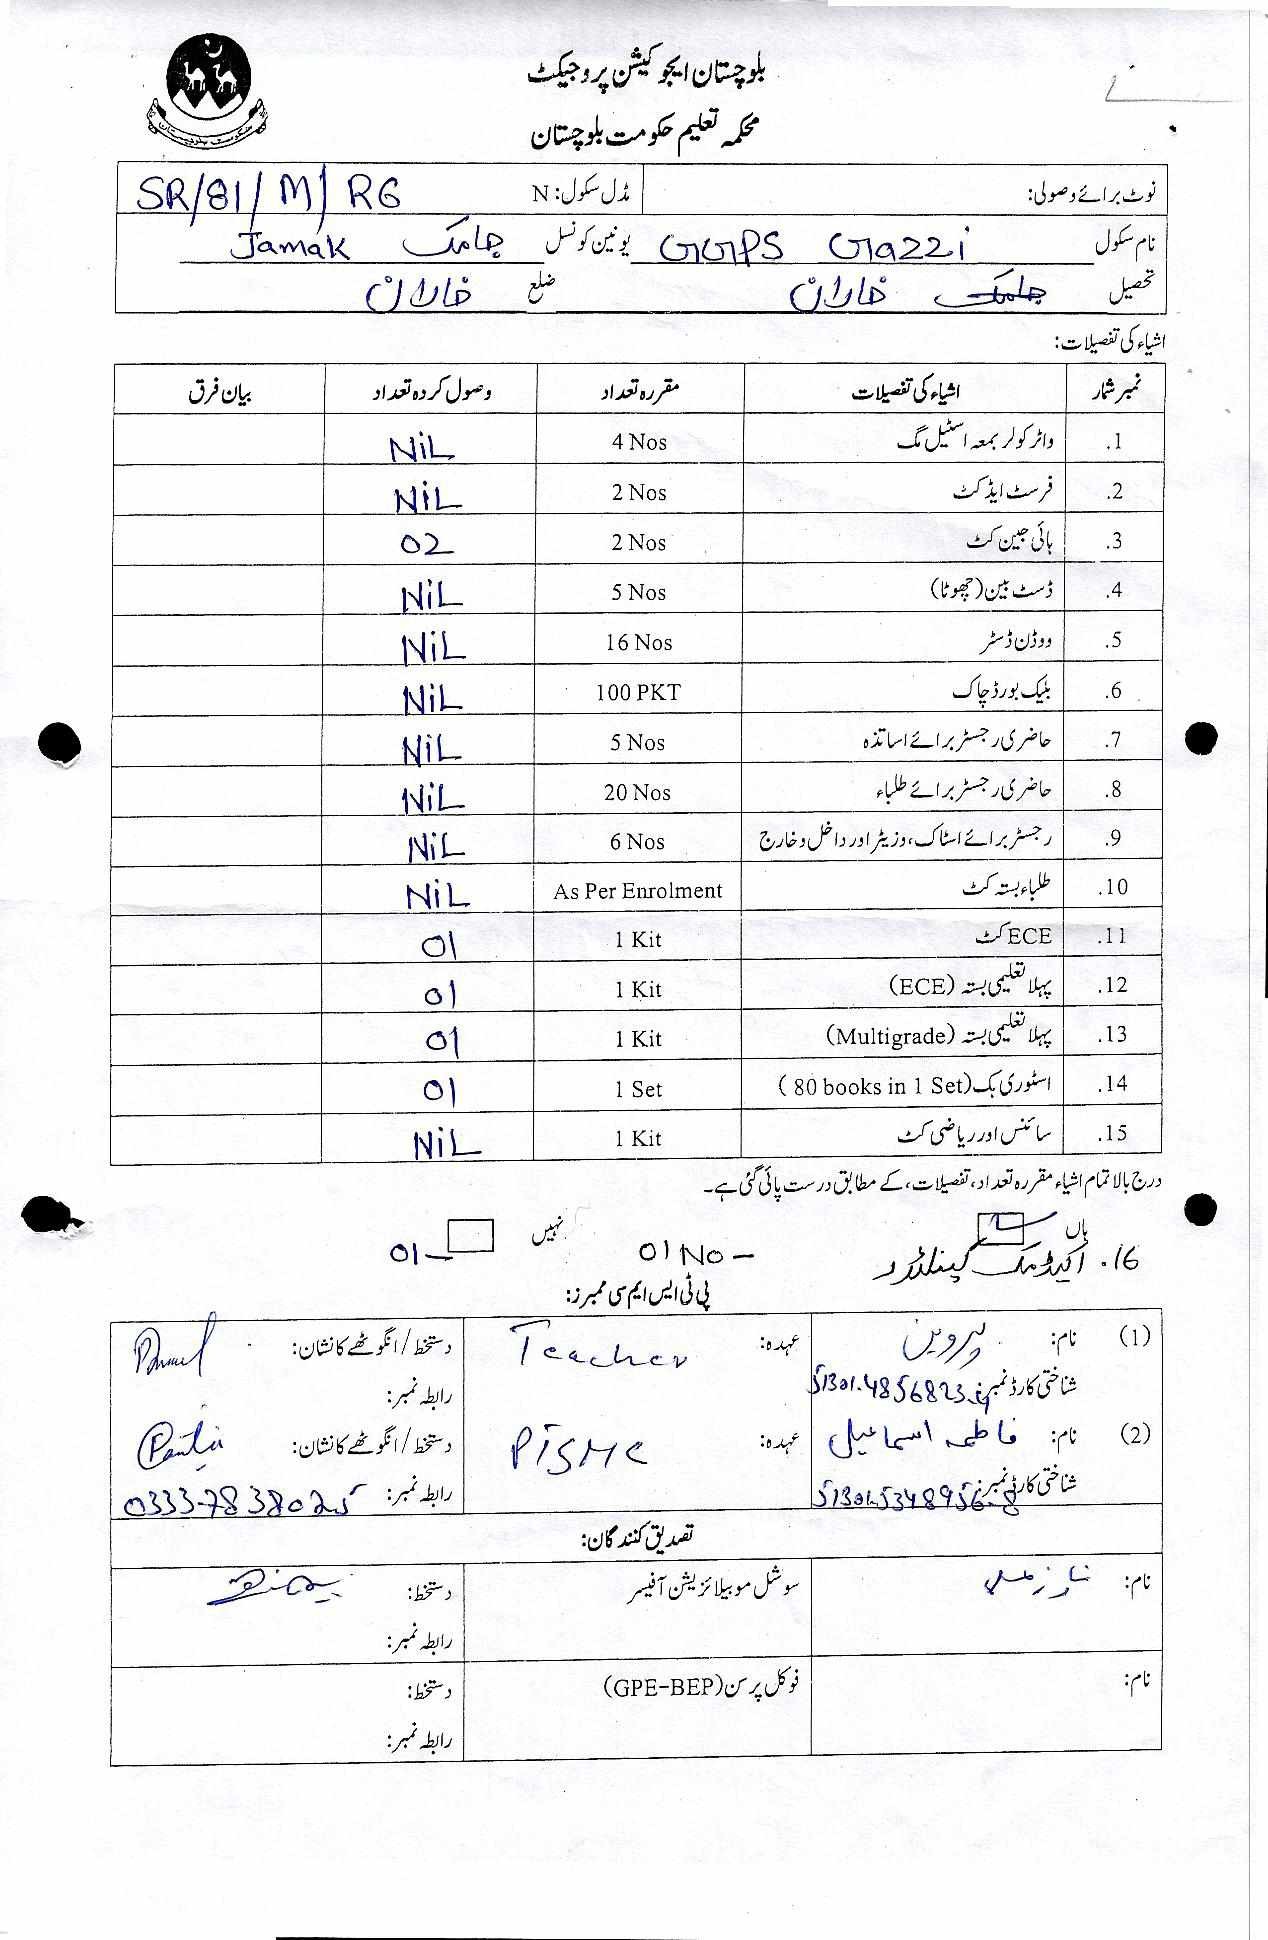 بلوچستان ایجوکیشن پروجیکٹ
محکمہ تعلیم حکومت بلوچستان
حکومت بلوچستان
نوٹ برائے وصولی: مڈل سکول: N SR/81/M/RG
نام سکول GGPS Gazzi یونین کونسل جامک Jamak
تحصیل جامک خاران ضلع خاران
اشیاء کی تفصیلات:
نمبر شمار اشیاء کی تفصیلات مقررہ تعداد وصول کردہ تعداد بیان فرق
1. واٹر کولر بمعہ اسٹیل مگ 4 Nos NiL
2. فرسٹ ایڈ کٹ 2 Nos NiL
3. ہائی جین کٹ 2 Nos 02
4. ڈسٹ بین (چھوٹا) 5 Nos NiL
5. ووڈن ڈسٹر 16 Nos NiL
6. بلیک بورڈ چاک 100 PKT NiL
7. حاضری رجسٹر برائے اساتذہ 5 Nos NiL
8. حاضری رجسٹر برائے طلباء 20 Nos NiL
9. رجسٹر برائے اسٹاک، وزیٹر اور داخل و خارج 6 Nos NiL
10. طلباء بستہ کٹ As Per Enrolment NiL
11. ECE کٹ 1 Kit 01
12. پہلا تعلیمی بستہ (ECE) 1 Kit 01
13. پہلا تعلیمی بستہ (Multigrade) 1 Kit 01
14. اسٹوری بک (80 books in 1 Set) 1 Set 01
15. سائنس اور ریاضی کٹ 1 Kit NiL
درج بالا تمام اشیاء مقررہ تعداد، تفصیلات، کے مطابق درست پائی گئی ہے۔
ہاں نہیں
16. اکیڈمک کیلنڈر 01 No – 01 –
پی ٹی ایس ایم سی ممبرز:
(1) نام: پروین عہدہ: Teacher دستخط / انگوٹھے کا نشان:
شناختی کارڈ نمبر: رابطہ نمبر:
(2) نام: فاطمہ اسماعیل عہدہ: PTSMC دستخط / انگوٹھے کا نشان:
شناختی کارڈ نمبر: 51301-5348956-8 رابطہ نمبر: 0333-7838025
تصدیق کنندگان:
نام: سوشل موبیلائزیشن آفیسر دستخط:
رابطہ نمبر:
نام: فوکل پرسن (GPE-BEP) دستخط:
رابطہ نمبر: